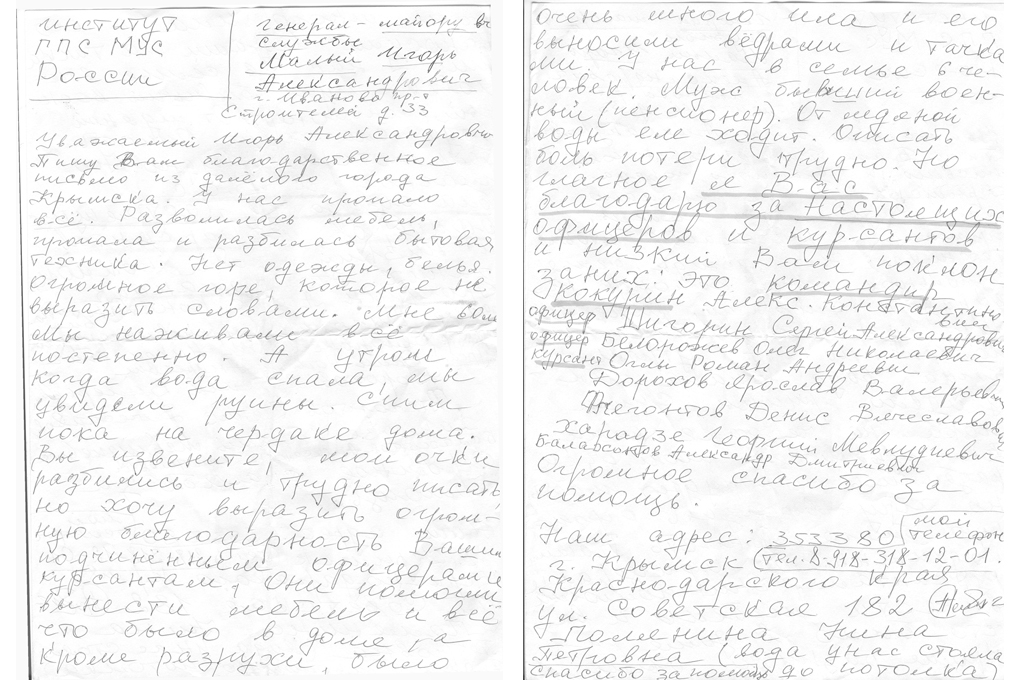 институт
ГПС МЧС
России
генерал-майору вн
службы
Малый Игорь
Александрович
г. Иваново пр-т
Строителей д. 33
Уважаемый Игорь Александрович
Пишу Вам благодарственное
письмо из далёкого города
Крымска. У нас пропало
всё. Развалилась мебель,
пропала и разбилась бытовая
техника. Нет одежды, белья.
Огромное горе, которое не
выразить словами. Мне
мы наживали всё
постепенно. А утром
когда вода спала, мы
увидели руины. Спим
пока на чердаке дома.
Вы извените, мои очки
разбились и трудно писать
но хочу выразить огром-
ную благодарность Вашим
подчинённым офицерам и
курсантам, Они помогли
вынести мебель и всё
что было в доме, а
кроме разрухи, было
очень много ила и его
выносили вёдрами и тачка
ми. У нас в семье 6 че-
ловек. Муж бывший воен-
ный (пенсионер). От ледяной
воды еле ходит. Описать
боль потери трудно. Но
главное я Вас
благодарю за Настоящих
офицеров и курсантов
и низкий Вам поклон
за них: это командир
Кокурин Алекс. Константино
вич
офицер Шигорин Сергей Александрович
офицер Белорожев Олег Николаевич
курсант Оглы Роман Андреевич
Дорохов Ярослав Валерьевич
Жегонтов Денис Вячеславович
Харадзе Георгий Мевлудиевич
Балабонтов Александр Дмитриевич
Огромное спасибо за
помощь.
мой
телефон
Наш адрес: 353380
г. Крымск (тел. 8-918-318-12-01.
Краснодарского края
ул. Советская 182
Полянина Нина
Петровна (вода у нас стояла
спасибо за помощь до потолка)